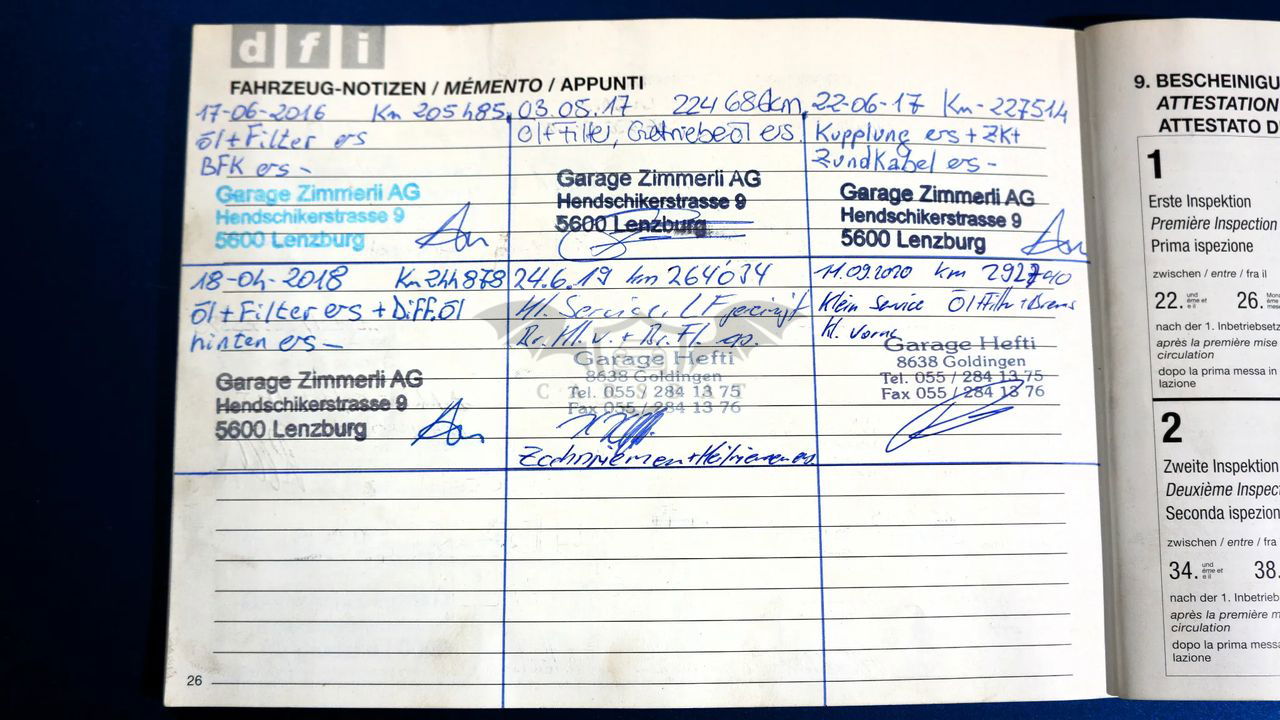 dfi
FAHRZEUG-NOTIZEN / MÉMENTO / APPUNTI
17-06-2016 Km 205485
öl+Filter ers
BFK ers -
Garage Zimmerli AG
Hendschikerstrasse 9
5600 Lenzburg
03.05.17 224686km
öl+Filter, Getriebeöl ers.
Garage Zimmerli AG
Hendschikerstrasse 9
5600 Lenzburg
22-06-17 Km-227514
Kupplung ers + ZKt
Zundkabel ers -
Garage Zimmerli AG
Hendschikerstrasse 9
5600 Lenzburg
18-04-2018 Km 244878
öl+Filter ers + Diff.öl
hinten ers -
Garage Zimmerli AG
Hendschikerstrasse 9
5600 Lenzburg
24.6.19 km 264034
Kl. Service, LF gereinigt
Br. Kl. v. + Br. Fl.
Garage Hefti
8638 Goldingen
Tel. 055 / 284 13 75
Fax 055 / 284 13 76
Zahnriemen + Keilriemen ers
11.09.2020 km
Klein Service Öl+Filter+Brems
Kl. vorne
Garage Hefti
8638 Goldingen
Tel. 055 / 284 13 75
Fax 055 / 284 13 76
26
9. BESCHEINIGU
ATTESTATION
ATTESTATO D
1
Erste Inspektion
Première Inspection
Prima ispezione
zwischen / entre / fra il
22. und ème et e il 26.
nach der 1. Inbetriebsetz
après la première mise
circulation
dopo la prima messa in
lazione
2
Zweite Inspektion
Deuxième Inspec
Seconda ispezion
zwischen / entre / fra
34. und ème et e il 38.
nach der 1. Inbetrieb
après la première m
circulation
dopo la prima messa
lazione